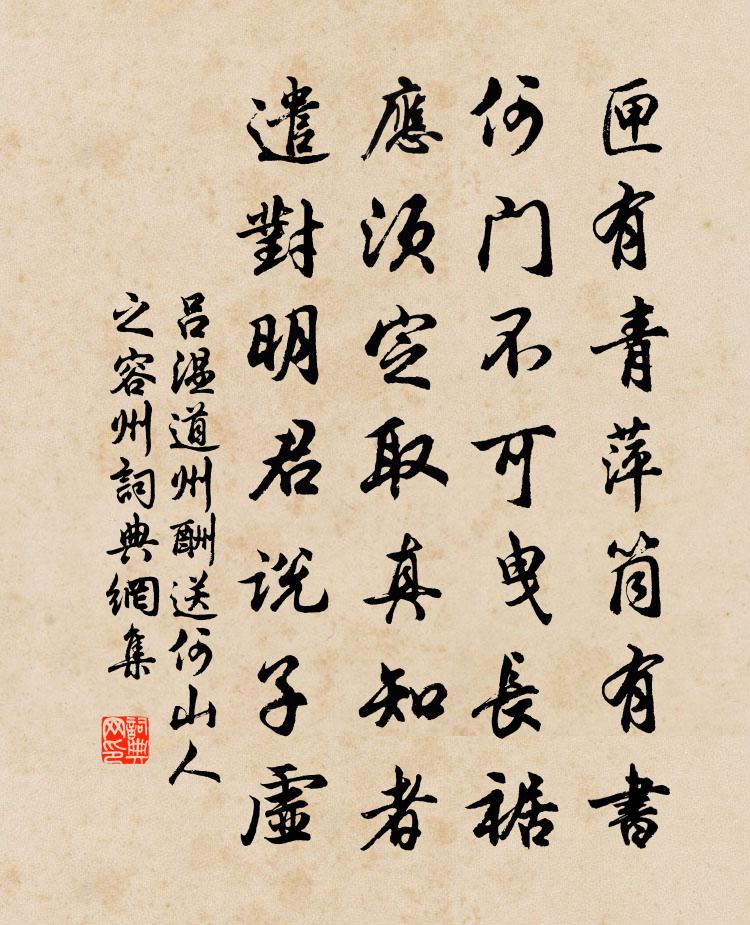 匣有青萍筒有書
何門不可曳長裾
應須定取真知者
遣對明君説子虛
吕溫道州酬送何山人
之容州詞典網集
詞典网印